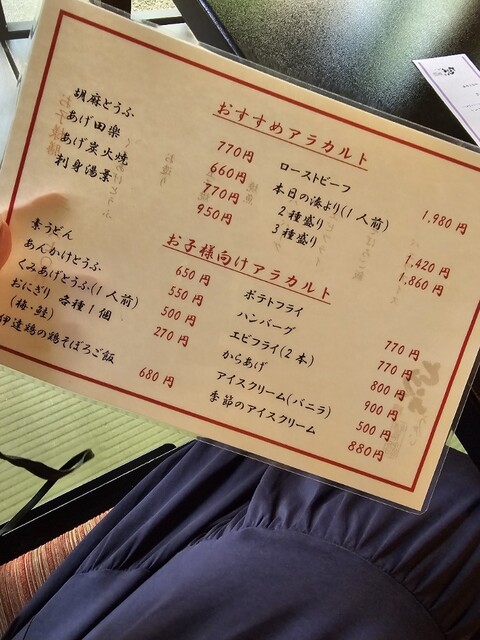 おすすめアラカルト
胡麻とうふ 770円
あげ田楽 660円
あげ炭火焼 770円
刺身湯景 950円
ローストビーフ 1,980円
本日の湊より(1人前)
2種盛り 1,420円
3種盛り 1,860円
お子様向けアラカルト
素うどん 650円
あんかけとうふ 550円
くみあげとうふ(1人前) 500円
おにぎり 各種1個 270円
(梅・鮭)
伊達鶏の鶏そぼろご飯 680円
ポテトフライ 770円
ハンバーグ 770円
エビフライ(2本) 800円
からあげ 900円
アイスクリーム(バニラ) 500円
季節のアイスクリーム 880円